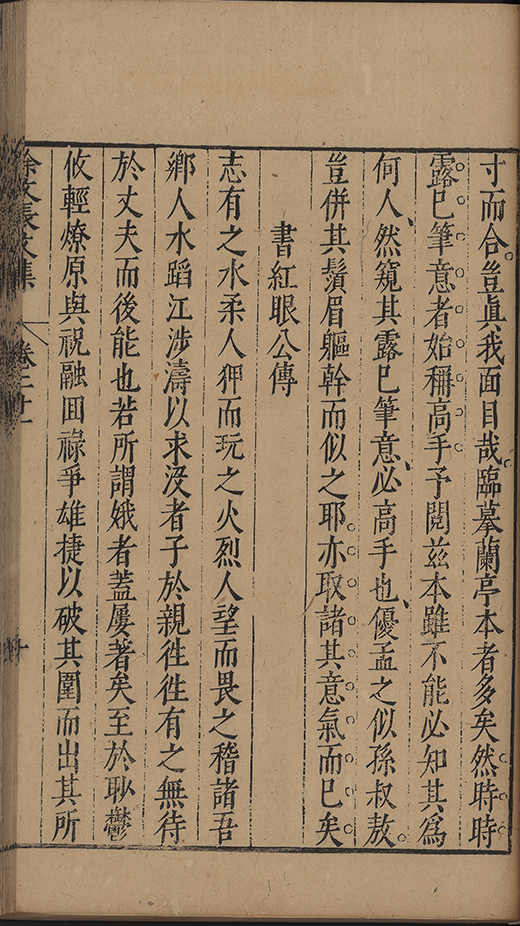 寸而合豈眞我面目哉臨摹蘭亭本者多矣然時時
露己筆意者始稱高手予閱茲本雖不能必知其爲
何人然窺其露己筆意必高手也優孟之似孫叔敖
豈併其鬚眉軀幹而似之耶亦取諸其意氣而已矣
書紅眼公傳
志有之水柔人狎而玩之火烈人望而畏之稽諸吾
鄉人水蹈江涉濤以求没者子於親徃徃有之無待
於丈夫而後能也若所謂娥者蓋屢著矣至於耿鬱
攸輕燎原與祝融回祿爭雄捷以破其圍而出其所
徐文長文集 卷二十一 十